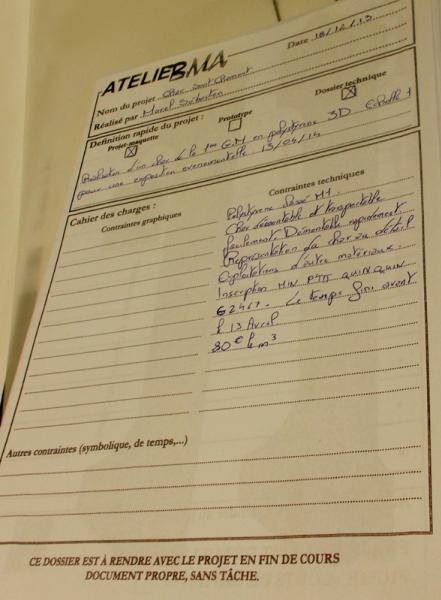 ATELIER BMA
Date 18/12/13
Nom du projet Char Saint Chamont
Réalisé par Marcel Sébastien
Definition rapide du projet :
Projet-maquette Prototype Dossier technique
Réalisation d'un char de la 1ère G.M en polystyrène 3D Echelle 1
pour une exposition evenementielle 13/04/14
Cahier des charges :
Contraintes graphiques
Contraintes techniques
Polystyrene classé M1.
Char démontable et transportable
facilement, Démontable rapidement
Représentation du char au détail
Exploitations d'autres matériaux.
Inscription MIN PTT QUINQUIN
62467. Le temps fini avant
le 13 Avril
80 € le m³
Autres contraintes (symbolique, de temps,...)
CE DOSSIER EST À RENDRE AVEC LE PROJET EN FIN DE COURS
DOCUMENT PROPRE, SANS TÂCHE.